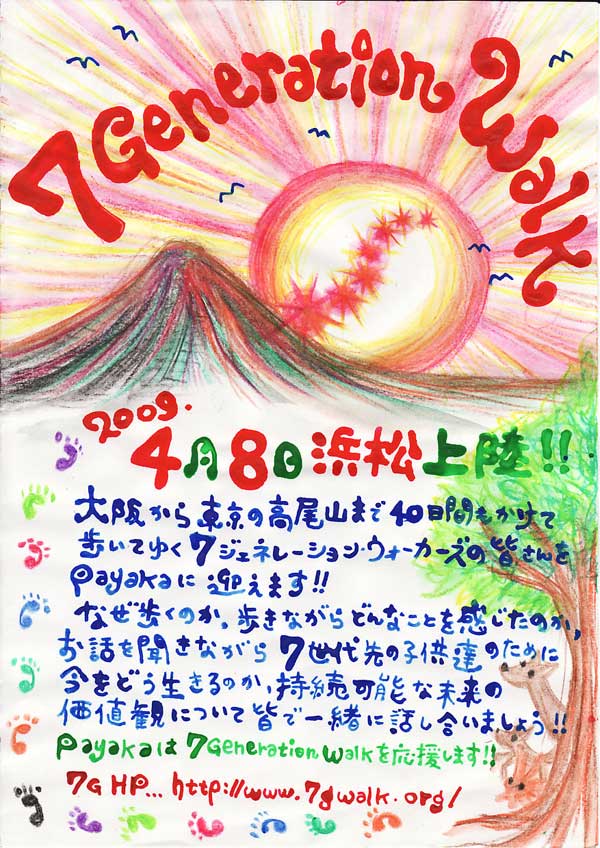 7 Generation Walk
2009.
4月8日浜松上陸!!
大阪から東京の高尾山まで40日間もかけて
歩いてゆく7ジェネレーション・ウォーカーズの皆さんを
Payakaに迎えます!!
なぜ歩くのか。歩きながらどんなことを感じたのか,
お話を聞きながら7世代先の子供達のために
今をどう生きるのか,持続可能な未来の
価値観について皆で一緒に話し合いましょう!!
Payakaは7Generation Walkを応援します!!
7G HP... http://www.7gwalk.org/